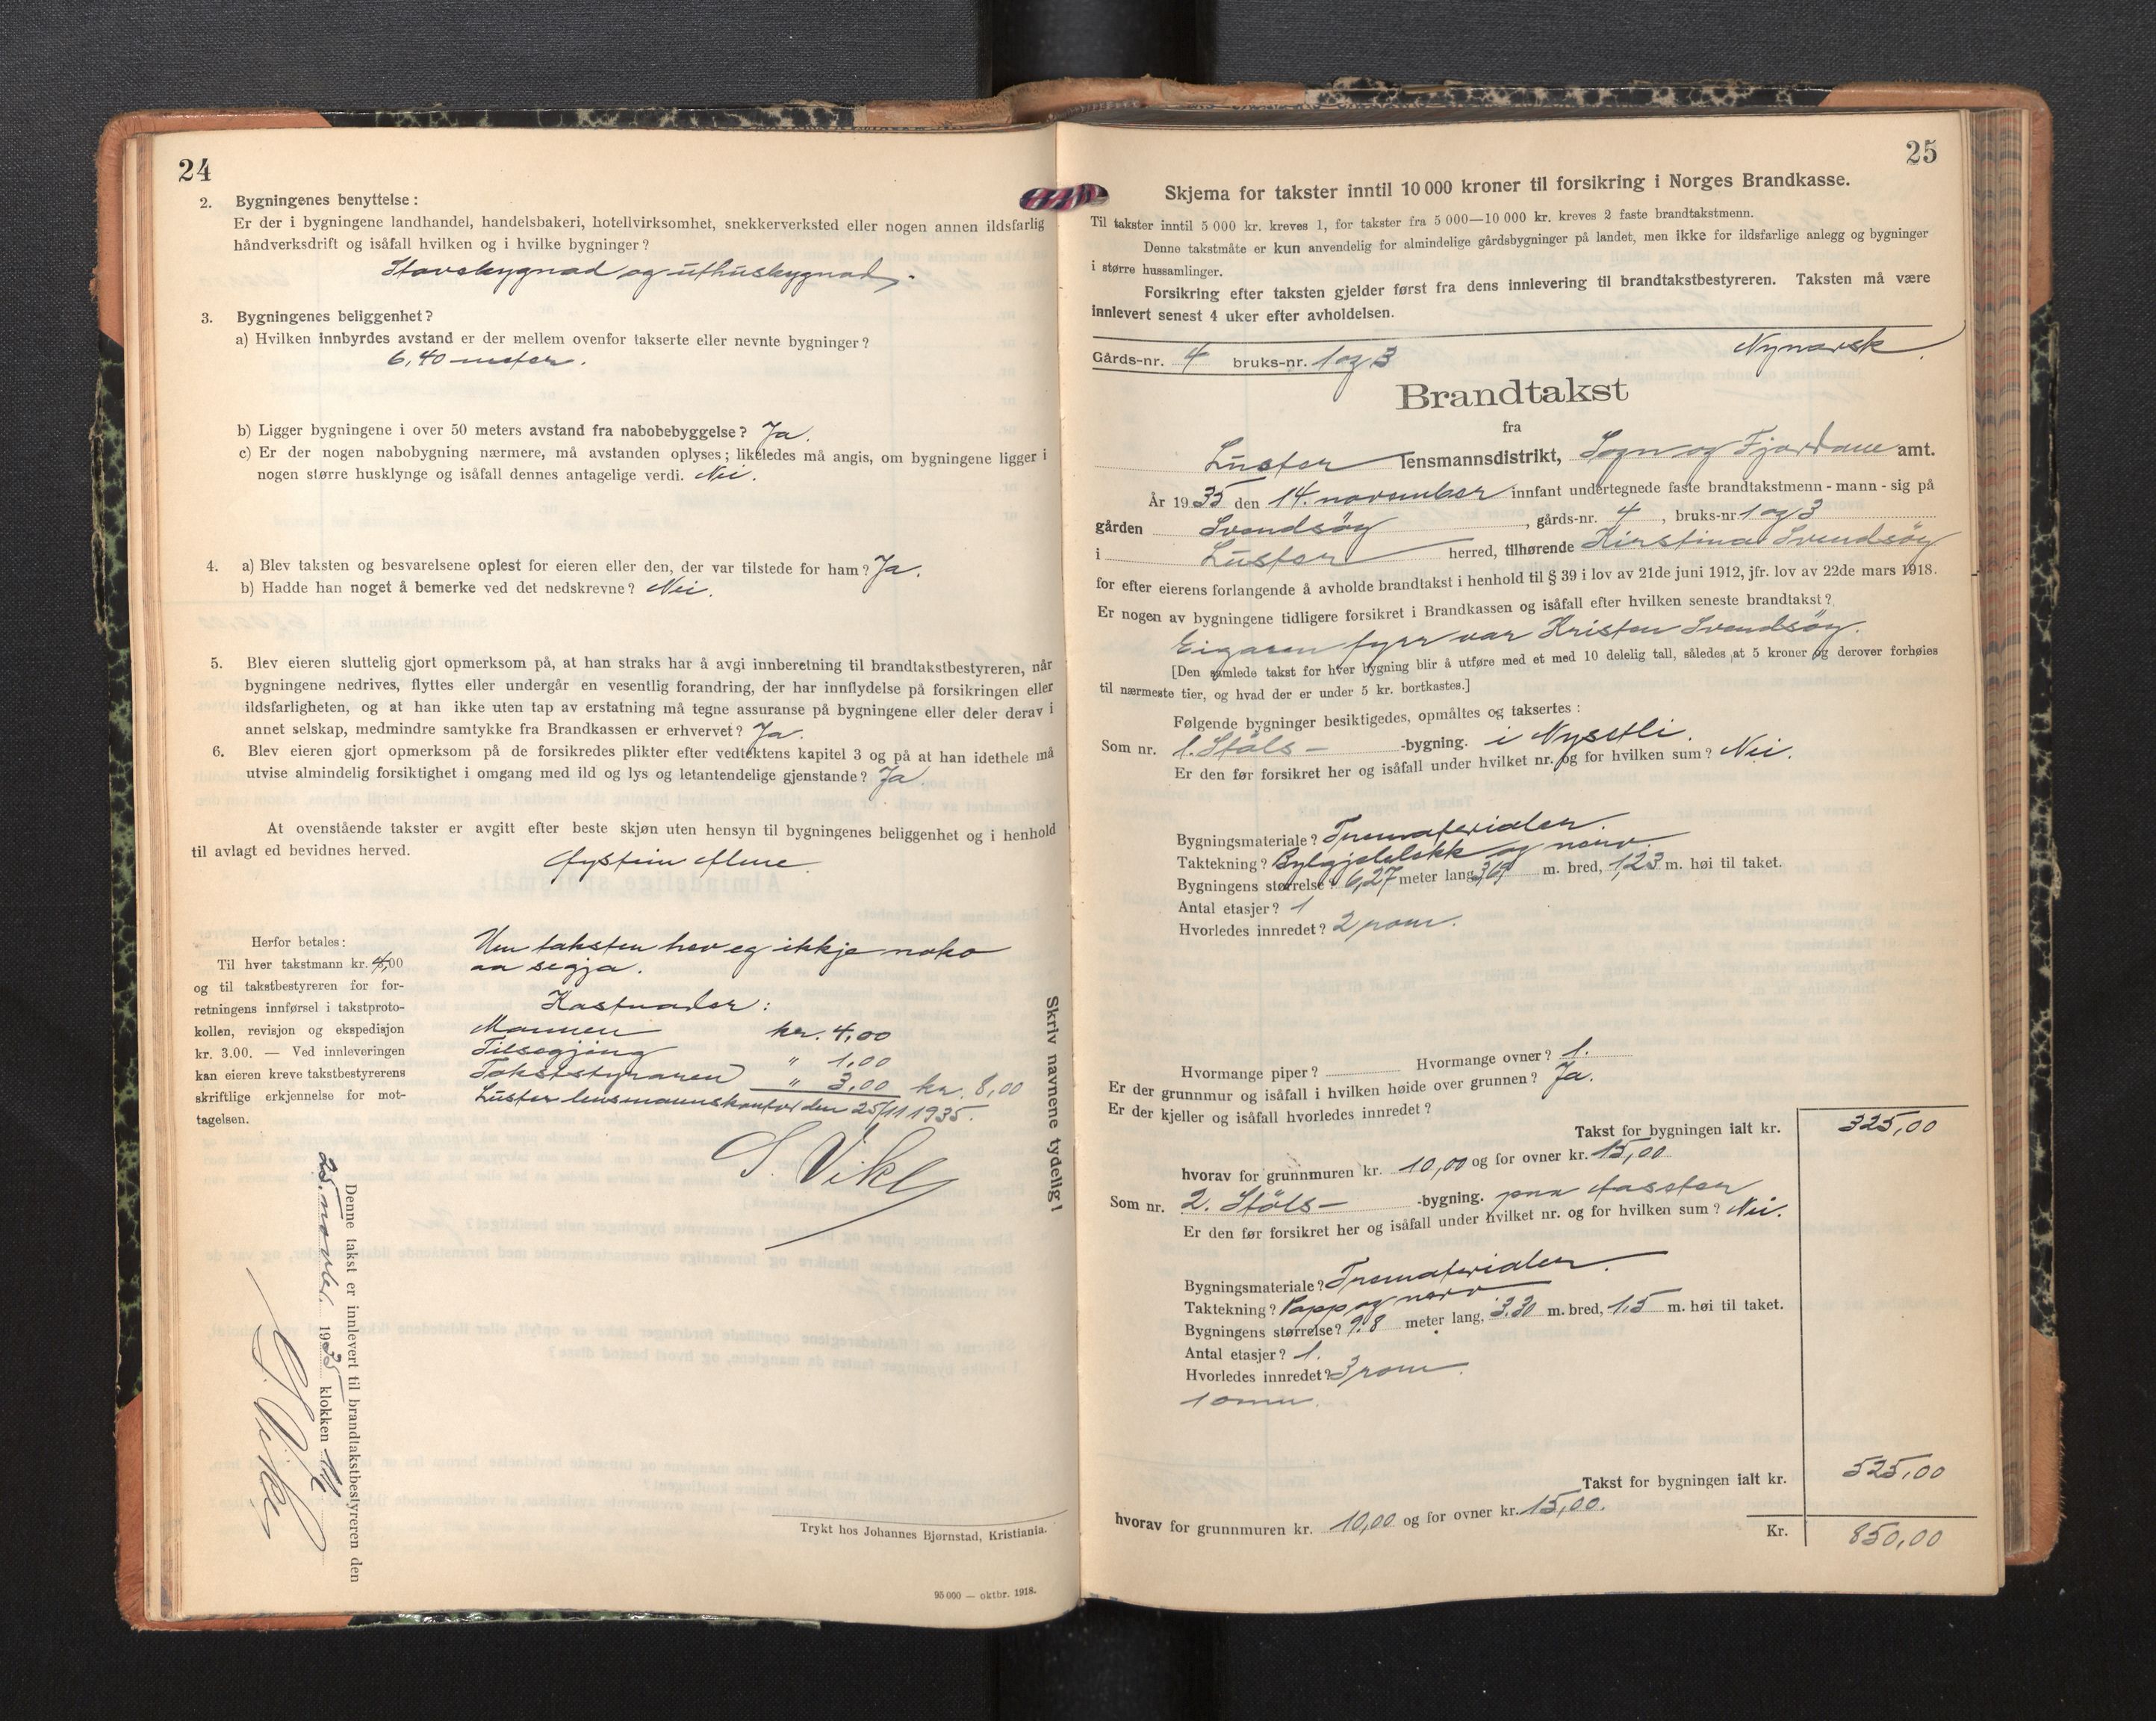 24
2. Bygningenes benyttelse:
Er der i bygningene landhandel, handelsbakeri, hotellvirksomhet, snekkerverksted eller nogen annen ildsfarlig
håndverksdrift og isåfall hvilken og i hvilke bygninger?
Stovebygnad og uthusbygnad.
3. Bygningenes beliggenhet?
a) Hvilken innbyrdes avstand er der mellem ovenfor takserte eller nevnte bygninger?
6,40 meter.
b) Ligger bygningene i over 50 meters avstand fra nabobebyggelse? Ja.
c) Er der nogen nabobygning nærmere, må avstanden oplyses; likeledes må angis, om bygningene ligger i
nogen større husklynge og isåfall dennes antagelige verdi. Nei.
4. a) Blev taksten og besvarelsene oplest for eieren eller den, der var tilstede for ham? Ja.
b) Hadde han noget å bemerke ved det nedskrevne? Nei.
5. Blev eieren sluttelig gjort opmerksom på, at han straks har å avgi innberetning til brandtakstbestyreren, når
bygningene nedrives, flyttes eller undergår en vesentlig forandring, der har innflydelse på forsikringen eller
ildsfarligheten, og at han ikke uten tap av erstatning må tegne assuranse på bygningene eller deler derav i
annet selskap, medmindre samtykke fra Brandkassen er erhvervet? Ja.
6. Blev eieren gjort opmerksom på de forsikredes plikter efter vedtektens kapitel 3 og på at han idethele må
utvise almindelig forsiktighet i omgang med ild og lys og letantendelige gjenstande? Ja
At ovenstående takster er avgitt efter beste skjøn uten hensyn til bygningenes beliggenhet og i henhold
til avlagt ed bevidnes herved.
Herfor betales:
Til hver takstmann kr. 4,00
og til takstbestyreren for for-
retningens innførsel i takstproto-
kollen, revisjon og ekspedisjon
kr. 3.00. — Ved innleveringen
kan eieren kreve takstbestyrerens
skriftlige erkjennelse for mot-
tagelsen.
Um taksten hev eg ikkje noko
aa segja.
Kostnader:
Mannen kr. 4,00
Tilsegjing " 1,00
Takststyraren " 3,00 kr. 8,00
Luster lensmannskontor den 25/11 1935.
S. Vikl
Skriv navnene tydelig!
Denne takst er innlevert til brandtakstbestyreren den
25. novbr. 1935 klokken 12
S. Vikl
Trykt hos Johannes Bjørnstad, Kristiania.
95 000 — oktbr. 1918.
25
Skjema for takster inntil 10 000 kroner til forsikring i Norges Brandkasse.
Til takster inntil 5 000 kr. kreves 1, for takster fra 5 000—10 000 kr. kreves 2 faste brandtakstmenn.
Denne takstmåte er kun anvendelig for almindelige gårdsbygninger på landet, men ikke for ildsfarlige anlegg og bygninger
i større hussamlinger.
Forsikring efter taksten gjelder først fra dens innlevering til brandtakstbestyreren. Taksten må være
innlevert senest 4 uker efter avholdelsen.
Gårds-nr. 4 bruks-nr. 1 og 3 Nynorsk.
Brandtakst
fra
Luster lensmannsdistrikt, Sogn og Fjordane amt.
År 1935 den 14. november innfant undertegnede faste brandtakstmenn - mann - sig på
gården Svendsöy, gårds-nr. 4, bruks-nr 1 og 3
i Luster herred, tilhørende Kirstina Svendsöy
for efter eierens forlangende å avholde brandtakst i henhold til § 39 i lov av 21de juni 1912, jfr. lov av 22de mars 1918.
Er nogen av bygningene tidligere forsikret i Brandkassen og isåfall efter hvilken seneste brandtakst?
Eigaren fyrr var Kristen Svendsöy.
[Den samlede takst for hver bygning blir å utføre med et med 10 delelig tall, således at 5 kroner og derover forhøies
til nærmeste tier, og hvad der er under 5 kr. bortkastes.]
Følgende bygninger besiktigedes, opmåltes og taksertes:
Som nr. 1. Stöls- -bygning. i Nysetli.
Er den før forsikret her og isåfall under hvilket nr. og for hvilken sum? Nei.
Bygningsmateriale? Trematerialer.
Taktekning? Bylgjeblekk og nævr.
Bygningens størrelse? 6,27 meter lang, m. bred, 1,23 m. høi til taket.
Antal etasjer? 1
Hvorledes innredet? 2 rom.
Hvormange piper? Hvormange ovner? 1.
Er der grunnmur og isåfall i hvilken høide over grunnen? Ja.
Er der kjeller og isåfall hvorledes innredet?
Takst for bygningen ialt kr. 325,00
hvorav for grunnmuren kr. 10,00 og for ovner kr. 15,00
Som nr. 2. Stöls- -bygning. paa
Er den før forsikret her og isåfall under hvilket nr. og for hvilken sum? Nei.
Bygningsmateriale? Trematerialer.
Taktekning? Papp og nævr
Bygningens størrelse? 9.8 meter lang, 3.30 m. bred, 1.5 m. høi til taket.
Antal etasjer? 1.
Hvorledes innredet? 3 rom.
1 omn.
Takst for bygningen ialt kr. 525,00
hvorav for grunnmuren kr. 10,00 og for ovner kr. 15,00.
Kr. 850,00